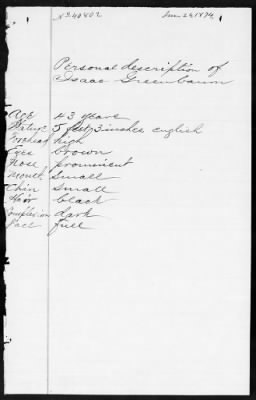 No 40402
Personal description of
Isaac Greenbaum
Age 43 years
Statur 5 feet, 3 inshes english
Forehead high
Eyes brown
Nose prominent
Mouth small
Chin small
Hair black
Complexion dark
Face full